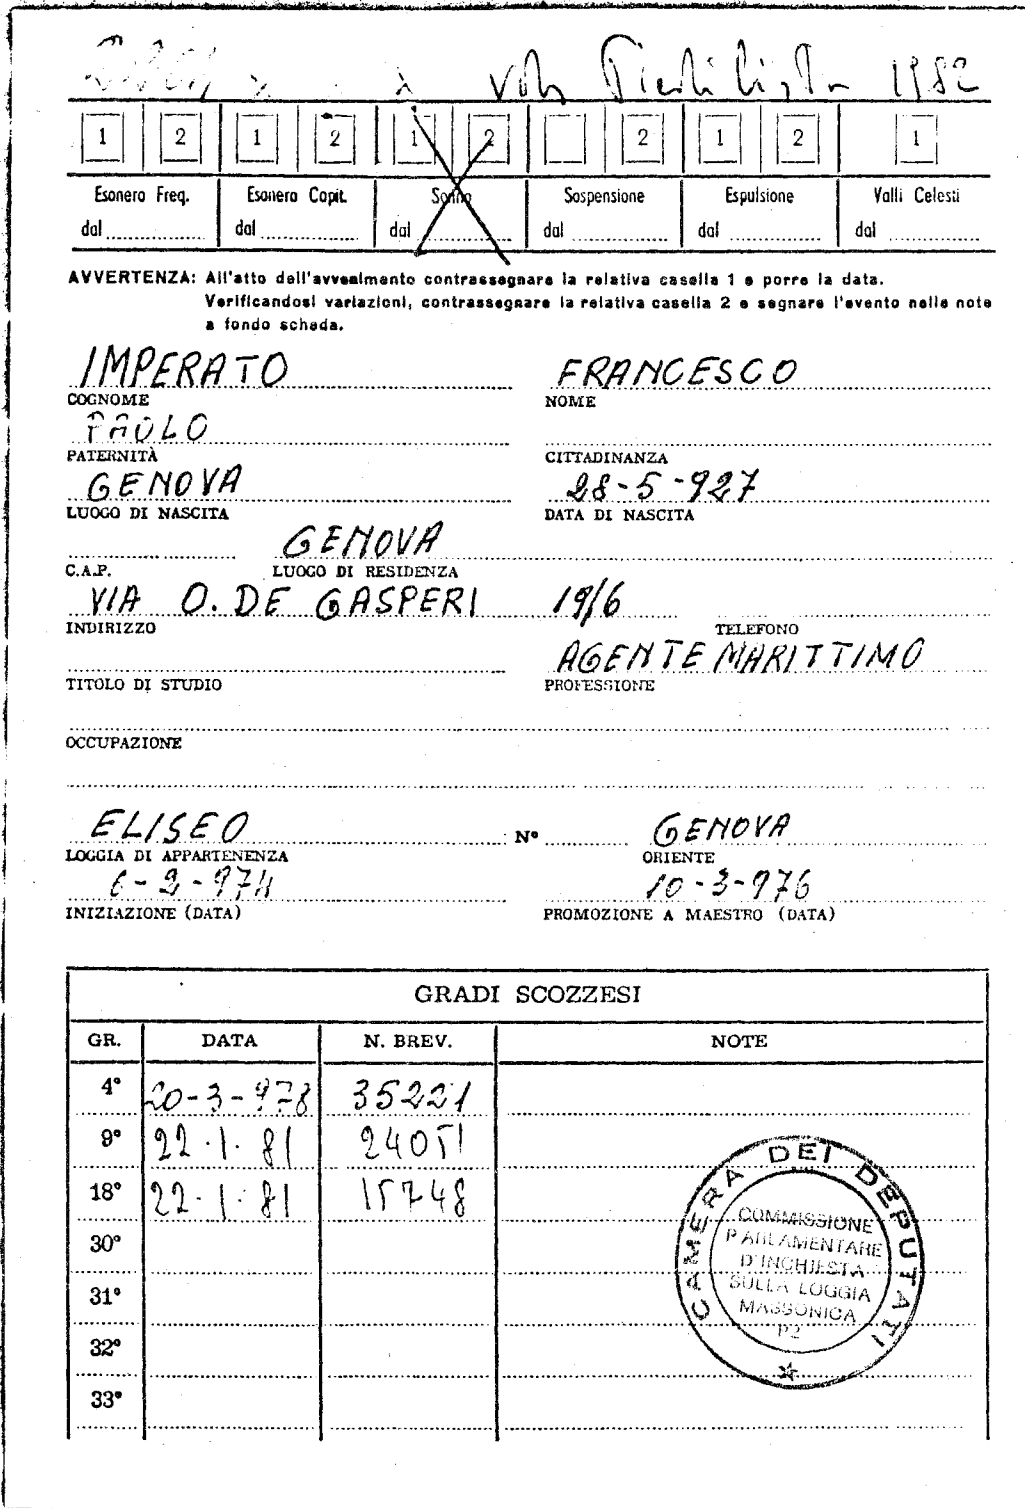 1982
1 2 1 2 1 2 2 1 2 1
Esonero Freq. Esonero Capit. Sonno Sospensione Espulsione Valli Celesti
dal dal dal dal dal dal
AVVERTENZA: All'atto dell'avvenimento contrassegnare la relativa casella 1 e porre la data.
Verificandosi variazioni, contrassegnare la relativa casella 2 e segnare l'evento nelle note
a fondo scheda.
IMPERATO FRANCESCO
COGNOME NOME
PAOLO
PATERNITÀ CITTADINANZA
GENOVA 28-5-927
LUOGO DI NASCITA DATA DI NASCITA
GENOVA
C.A.P. LUOGO DI RESIDENZA
VIA O. DE GASPERI 19/6
INDIRIZZO TELEFONO
AGENTE MARITTIMO
TITOLO DI STUDIO PROFESSIONE
OCCUPAZIONE
ELISEO N° GENOVA
LOGGIA DI APPARTENENZA ORIENTE
6-2-974 10-3-976
INIZIAZIONE (DATA) PROMOZIONE A MAESTRO (DATA)
GRADI SCOZZESI
GR. DATA N. BREV. NOTE
4° 20-3-978 35221
9° 22.1.81 24051
18° 22.1.81 15748
30°
31°
32°
33°
CAMERA DEI DEPUTATI
COMMISSIONE
PARLAMENTARE
D'INCHIESTA
SULLA LOGGIA
MASSONICA
P2